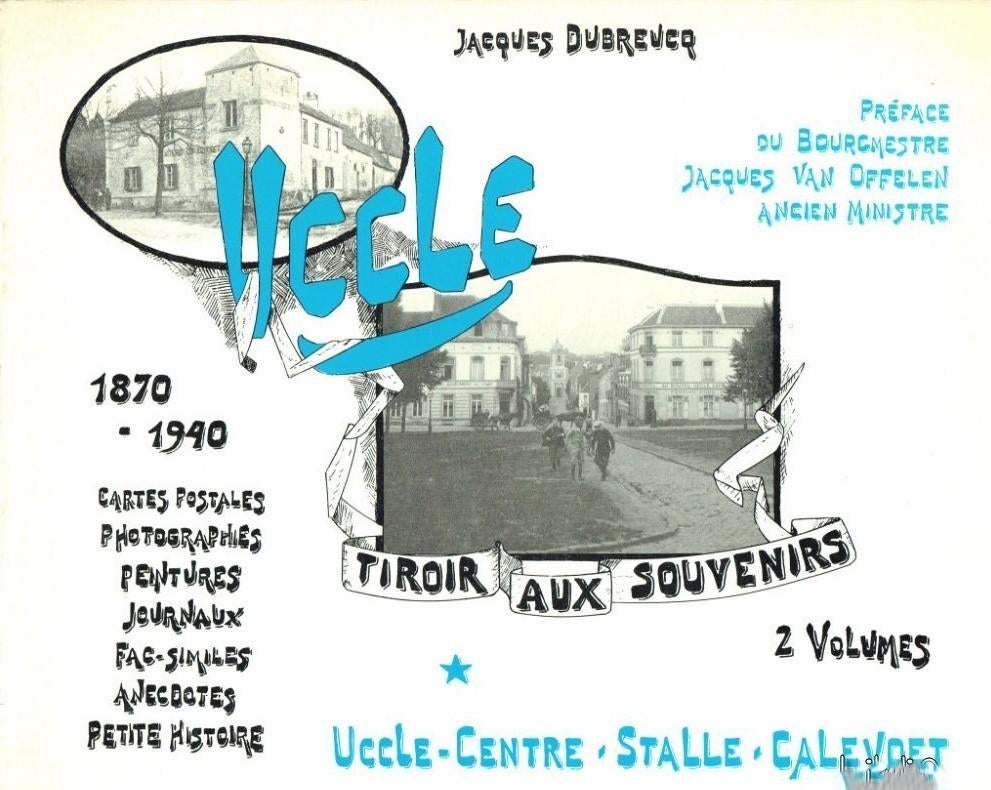 JACQUES DUBREUCQ
PRÉFACE
DU BOURGMESTRE
JACQUES VAN OFFELEN
ANCIEN MINISTRE
UCCLE
1870
- 1940
CARTES POSTALES
PHOTOGRAPHIES
PEINTURES
JOURNAUX
FAC-SIMILES
ANECDOTES
PETITE HISTOIRE
TIROIR AUX SOUVENIRS
2 VOLUMES
UCCLE-CENTRE • STALLE • CALEVOET